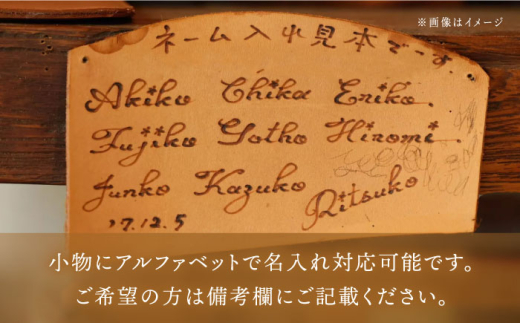 ※画像はイメージ
ネーム入れ見本でーす.
Akiko Chika Eriko.
Fujiko Gotho Hiromi.
Junko Kazuko Ritsuko
'7.12.5
小物にアルファベットで名入れ対応可能です。
ご希望の方は備考欄にご記載ください。